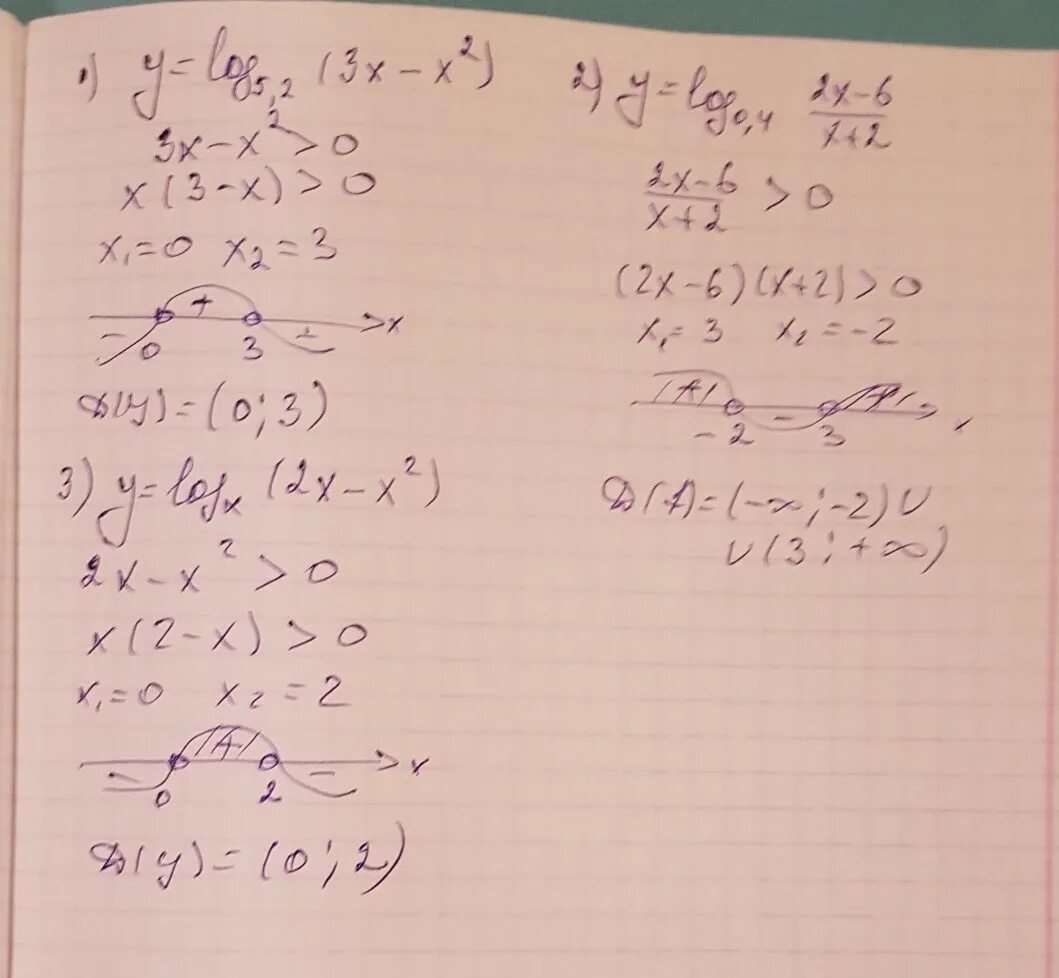 1) y = log₅,₂ (3x – x²)
3x – x² > 0
x (3 – x) > 0
x₁ = 0 x₂ = 3
– + – x
0 3
D(y) = (0; 3)
3) y = logₓ (2x – x²)
2x – x² > 0
x (2 – x) > 0
x₁ = 0 x₂ = 2
– + – x
0 2
D(y) = (0; 2)
2) y = log₀,₄ (2x – 6)/(x + 2)
(2x – 6)/(x + 2) > 0
(2x – 6)(x + 2) > 0
x₁ = 3 x₂ = –2
+ – + x
–2 3
D(f) = (–∞; –2) ∪
∪ (3; +∞)